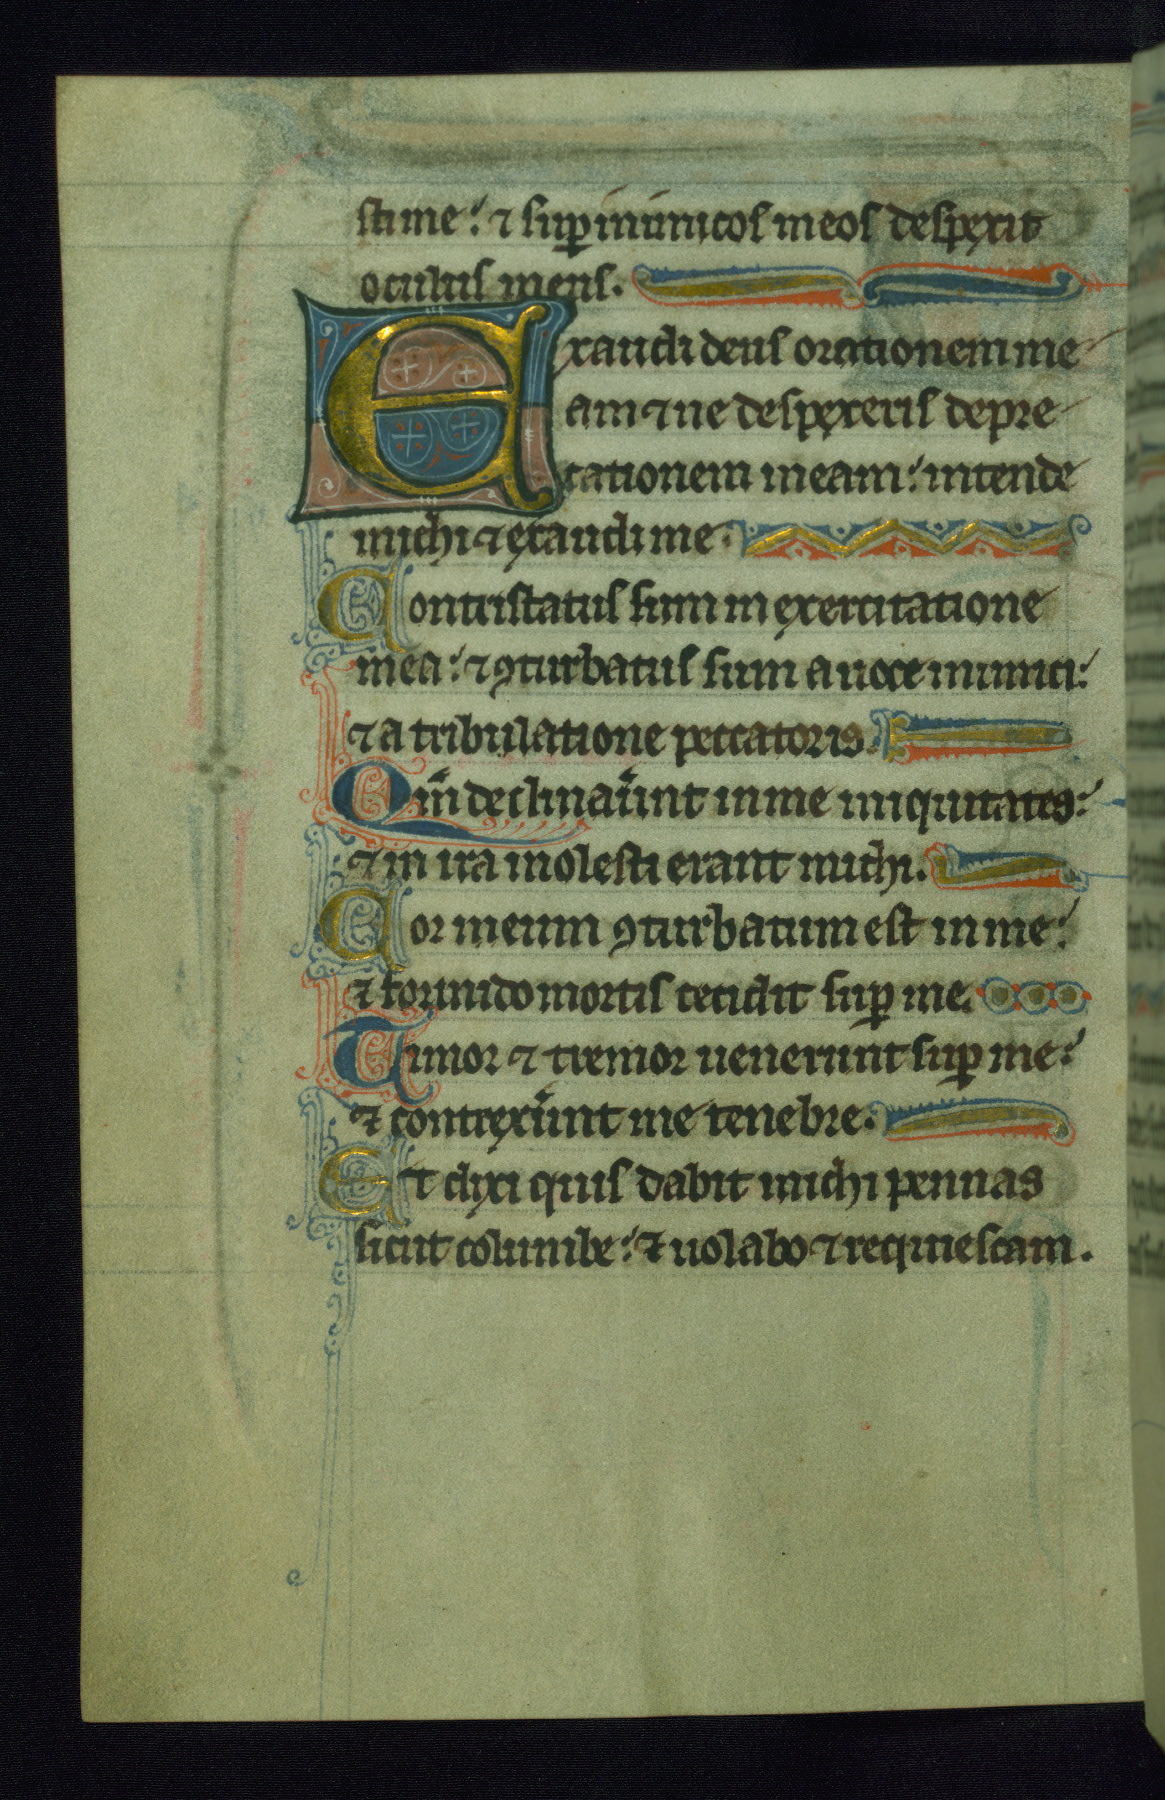 sti me: ⁊ suꝑ inimicos meos despexit
oculus meus.
Exaudi deus orationem me
am ⁊ ne despexeris depre
cationem meam: intende
michi ⁊ exaudi me.
Contristatus sum in exercitatione
mea: ⁊ ꝯturbatus sum a uoce inimici:
⁊ a tribulatione peccatoris.
Qm̄ declinauer̄unt in me iniquitates:
⁊ in ira molesti erant michi.
Cor meum ꝯturbatum est in me:
⁊ formido mortis cecidit suꝑ me.
Timor ⁊ tremor uenerunt suꝑ me:
⁊ contexer̄unt me tenebre.
Et dixi quis dabit michi pennas
sicut columbe: ⁊ uolabo ⁊ requiescam.